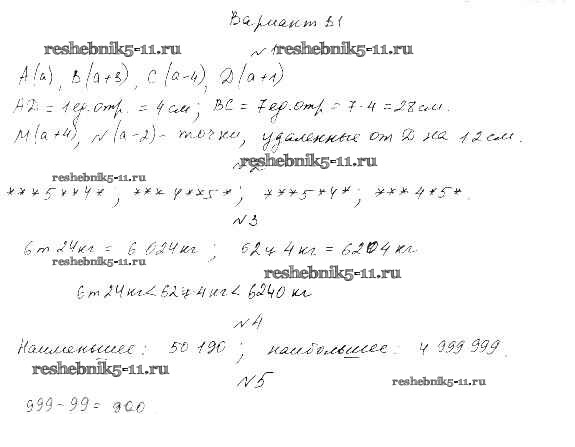 Вариант Б1
reshebnik5-11.ru №1 reshebnik5-11.ru
A(a), B(a+3), C(a-4), D(a+1)
AD = 1 ед. отр. = 4 см; BC = 7 ед. отр = 7·4 = 28 см.
M(a+4), N(a-2) - точки, удаленные от D на 12 см.
reshebnik5-11.ru
reshebnik5-11.ru
***5**4*; ***4**5*; ***5*4*; ***4*5*.
№3
6т 24кг = 6024кг; 62ц 4кг = 6204кг
reshebnik5-11.ru
reshebnik5-11.ru
6т 24кг < 62ц 4кг < 6240 кг
№4
Наименьшее: 50 190; наибольшее: 4 999 999.
reshebnik5-11.ru
№5 reshebnik5-11.ru
999-99 = 900